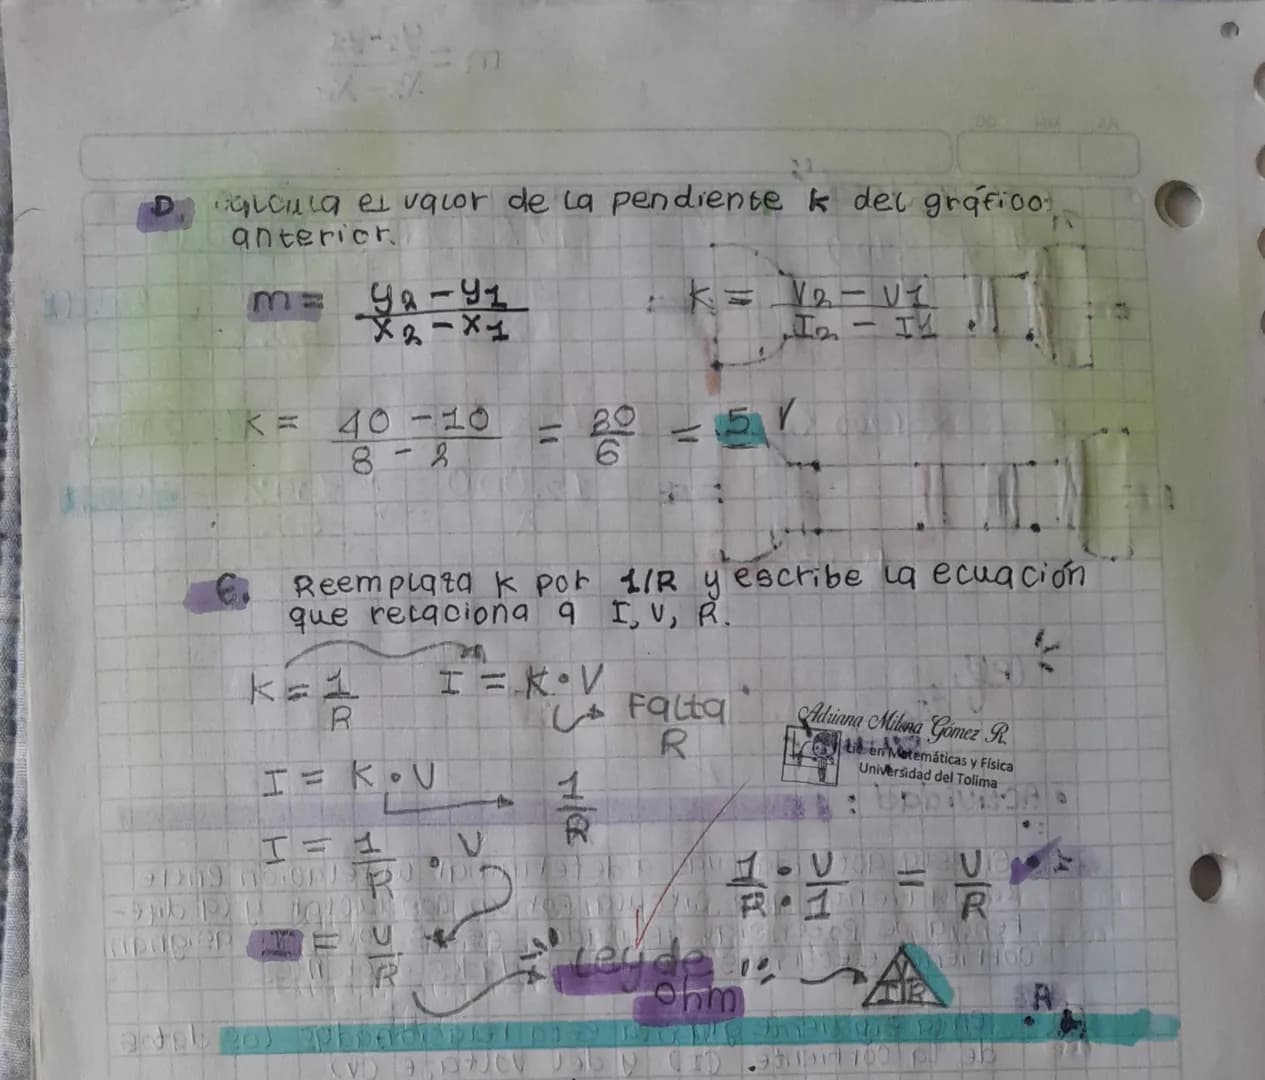 D. calcula el valor de la pendiente k del gráfico
anterior.
m = y2 - y1 / x2 - x1
K = V2 - V1 / I2 - I1
K = 40 - 10 / 8 - 2 = 30 / 6 = 5 V
E. Reemplaza K por 1/R y escribe la ecuación
que relaciona a I, V, R.
K = 1 / R
I = K • V
Falta
R
I = K • V
1 / R
I = 1 / R • V
1 / R • V / 1 = V / R
I = V / R
Ley de
Ohm
V
I R
Adriana Milena Gómez R.
Lic. en Matemáticas y Física
Universidad del Tolima